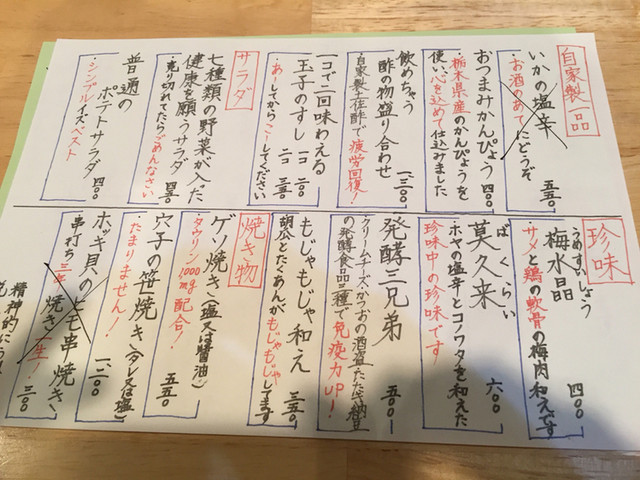 自家製一品
いかの塩辛
・お酒のあてにどうぞ 五五〇
おつまみかんぴょう 四〇〇
・栃木県産のかんぴょうを
使い心を込めて仕込みました
飲めちゃう
酢の物盛り合わせ 一、三〇〇
・自家製土佐酢で疲労回復!
一コで二回味わえる
玉子のすし 一コ 二三〇
・あーしてからこーしてください
サラダ
七種類の野菜が入った
健康を願うサラダ 四五〇
・売り切れてたらごめんなさい
普通の
ポテトサラダ 四〇〇
・シンプルイズベスト
珍味
うめすいしょう
梅水晶 四〇〇
・サメと鶏の軟骨の梅肉和えです
ばくらい
莫久来 六〇〇
・ホヤの塩辛とコノワタを和えた
珍味中の珍味です
発酵三兄弟 五〇〇
・クリームチーズ・かつおの酒盗・たたき納豆
の発酵食品三種で免疫力UP!
もじゃもじゃ和え 三五〇
胡瓜とたくあんがもじゃもじゃしてます
焼き物
ゲソ焼き(塩又は醤油)
タウリン1000mg配合! 五五〇
穴子の笹焼き(タレ又は塩)
・たまりません! 一、二〇〇
ホッキ貝のヒモ串焼き
串打ち三年焼き一生! 三〇〇
精神的に